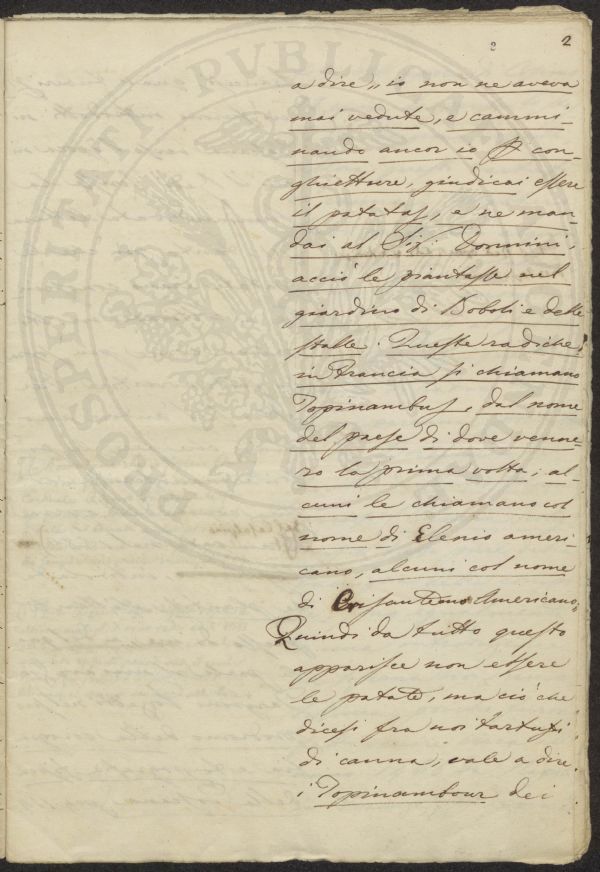 2
a dire „ io non ne aveva
mai vedute, e cammi-
nando ancor io p con-
ghietture, giudicai essere
il patatas, e ne man-
dai al Sig: Donnini,
acciò le piantasse nel
giardino di Boboli e delle
stalle. Queste radiche
in Francia si chiamano
Topinambus, dal nome
del paese di dove venne-
ro la prima volta; al-
cuni le chiamano col
nome di Elenio ameri-
cano, alcuni col nome
di Crisantemo Americano„
Quindi da tutto questo
apparisce non essere
le patate, ma ciò che
dicesi fra noi tartufi
di canna, vale a dire
i Topinambour dei
PROSPERITATI PVBLICAE